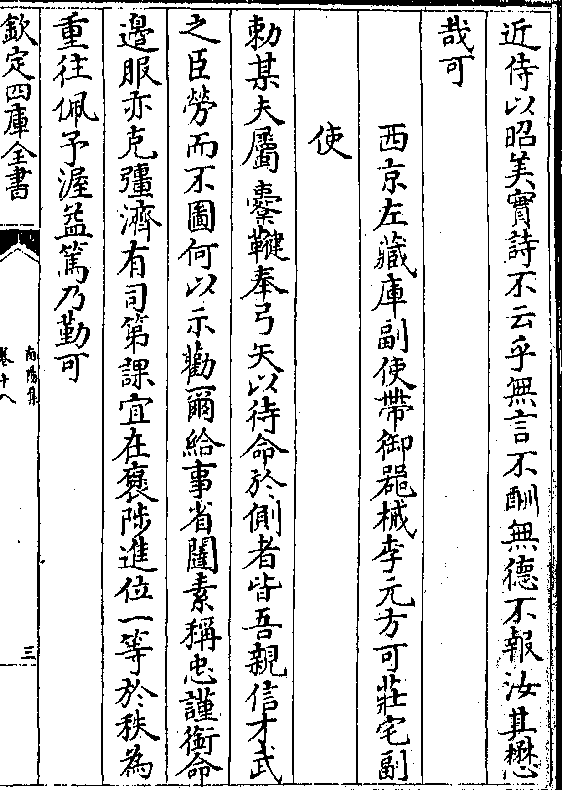 近侍以昭美實詩不云乎無言不酬無德不報汝其懋
哉可
西京左藏庫副使帶御器械李元方可莊宅副
使
勅某夫屬櫜鞬奉弓矢以待命於側者皆吾親信才武
之臣勞而不圖何以示勸爾給事省闥素稱忠謹銜命
邊服亦克彊濟有司第課宜在褒陟進位一等於秩為
重往佩予渥益篤乃勤可
欽定四庫全書
南陽集
卷十八
三